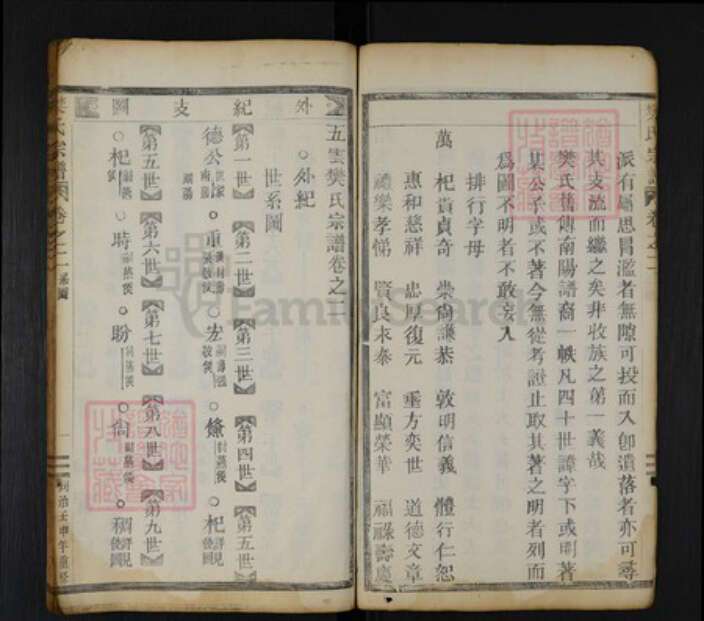 派有屬思冒濫者無隙可投而入卽遺落者亦可尋
其支流而繼之矣非收族之第一義哉
樊氏舊傳南陽譜裔一帙凡四十世諱字下或明著
某公子或不著今無從考證止取其著之明者列而
爲圖不明者不敢妄入
排行字母
萬 杞貢貞奇 崇尚謙恭 敦明信義 體行仁恕
惠和慈祥 忠厚復元 垂方奕世 道德文章
禮樂孝悌 賢良永泰 富顯榮華 福祿壽慶
樊氏宗譜 卷之二
五雲樊氏宗譜卷之二
外紀
世系圖
外 紀 支 圖
第一世 第二世 第三世 第四世 第五世
德公 重 宏 鯈 杞
第五世 第六世 第七世 第八世 第九世
杞 時 盼 尙 稠
樊氏宗譜 卷之二 系圖
一
同治壬申年重修
FamilySearch